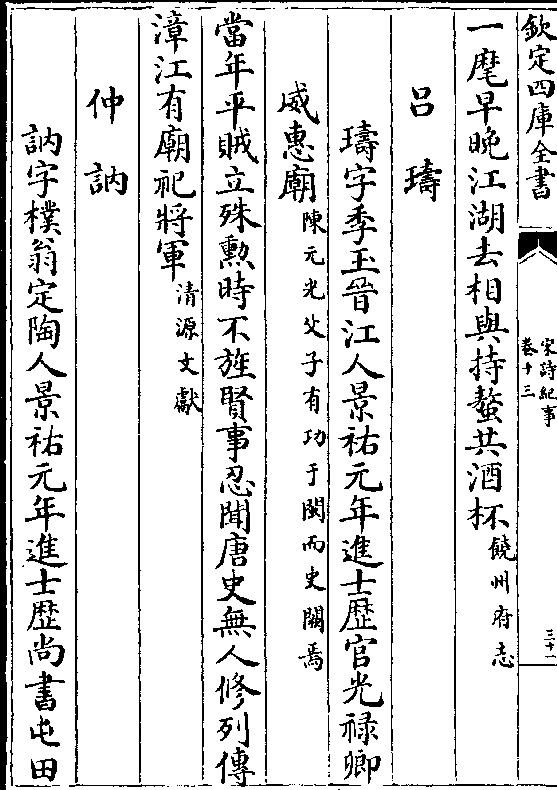 欽定四庫全書
宋詩紀事
卷十三
三十一
一麾早晚江湖去相與持螯共酒杯饒州府志
呂璹
璹字季玉晉江人景祐元年進士歴官光禄卿
威惠廟陳元光父子有功于閩而史闕焉
當年平賊立殊勲時不旌賢事忍聞唐史無人修列傳
漳江有廟祀將軍清源文獻
仲訥
訥字樸翁定陶人景祐元年進士歴尚書屯田